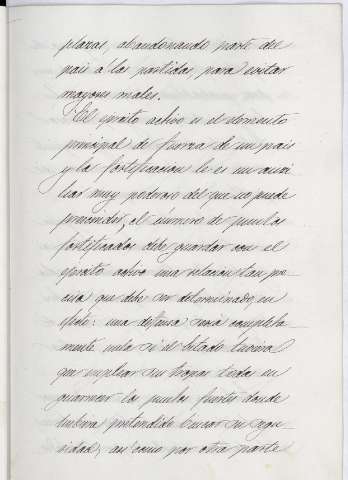 plazas, abandonando parte del
pais á las partidas, para evitar
mayores males.
El ejército activo es el elemento
principal de fuerza de un pais
y la fortificacion le es un auxi
liar muy poderoso del que no puede
prescindir, el número de puntos
fortificados debe guardar con el
ejército activo una relacion tan pre
cisa que debe ser determinada, en
efecto: una defensa seria completa
mente nula si el Estado tuviera
que emplear sus tropas todas en
guarnecer los puntos fuertes donde
hubiera pretendido buscar su segu
ridad, asi como por otra parte